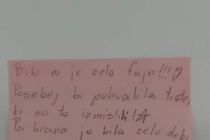 Bilo mi je zelo fajn!!!
Posebej bi pohvalila tiste,
ki so to izmislili
Pa hrana je bila zelo dobra